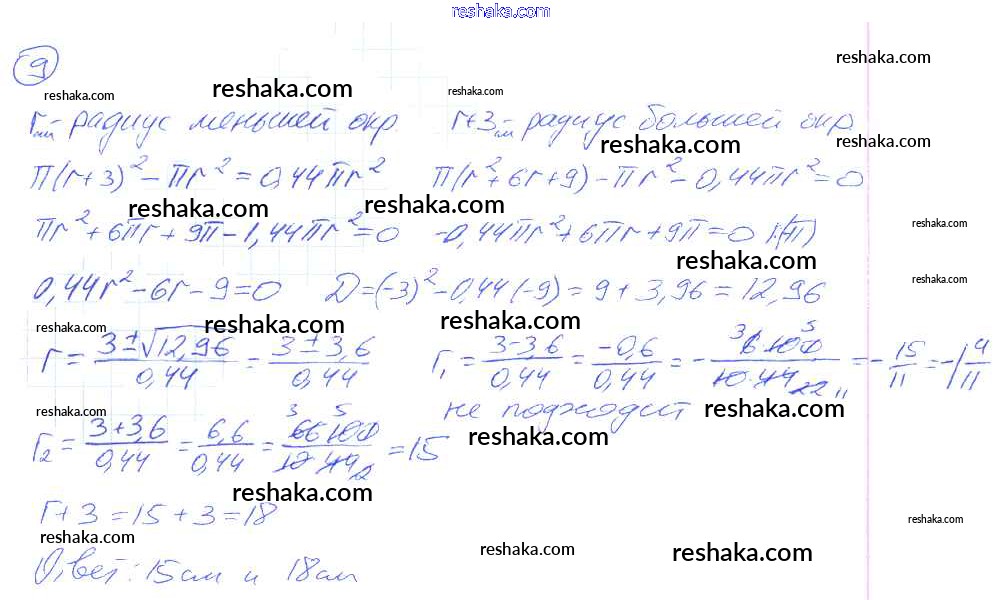 reshaka.com
9
reshaka.com
reshaka.com reshaka.com reshaka.com
r см - радиус меньшей окр. r+3 см - радиус большей окр.
reshaka.com reshaka.com
π(r+3)² - πr² = 0,44πr² π(r²+6r+9) - πr² - 0,44πr² = 0
reshaka.com reshaka.com reshaka.com
πr² + 6πr + 9π - 1,44πr² = 0 -0,44πr² + 6πr + 9π = 0 |:(-π)
reshaka.com reshaka.com
0,44r² - 6r - 9 = 0 D = (-3)² - 0,44·(-9) = 9 + 3,96 = 12,96
reshaka.com reshaka.com reshaka.com
r = (3 ± √12,96)/0,44 = (3 ± 3,6)/0,44 r₁ = (3-3,6)/0,44 = (-0,6)/0,44 = - (6·100)/(10·44) = - 15/11 = -1 4/11
reshaka.com не подходит reshaka.com
r₂ = (3+3,6)/0,44 = 6,6/0,44 = (66·100)/(10·44) = 15
reshaka.com
reshaka.com
r + 3 = 15 + 3 = 18
reshaka.com reshaka.com reshaka.com reshaka.com
Ответ: 15см и 18см